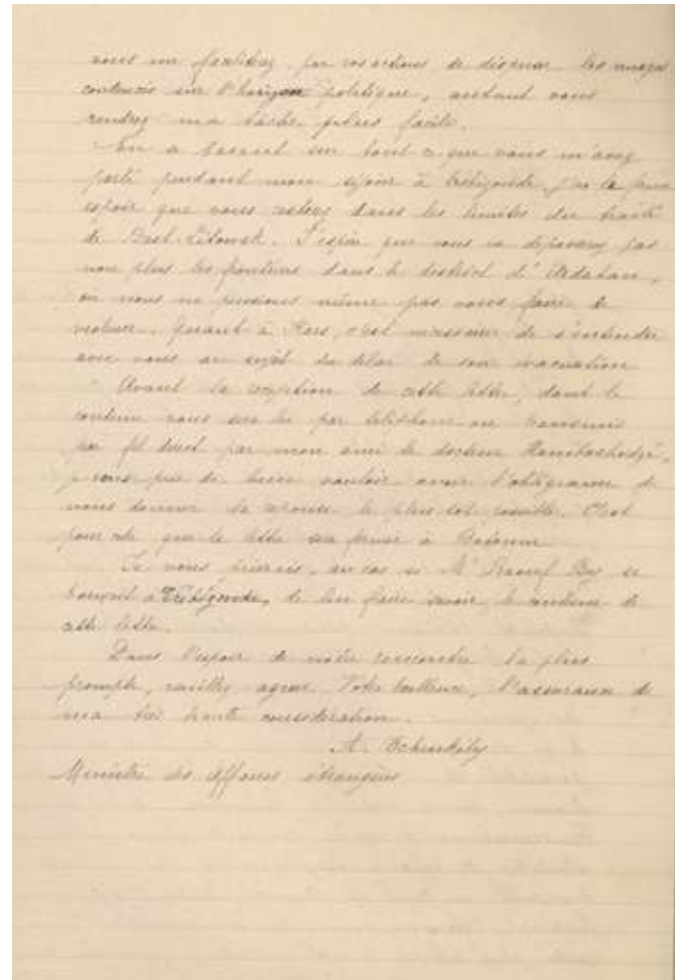 vous me facilitez par vos actions de dissiper les nuages
contenus sur l'horizon politique, autant vous
rendrez ma tâche plus facile.
En a basant sur tout ce que vous m'avez
parlé pendant mon séjour à Trébizonde, j'ai le ferme
espoir que vous resterez dans les limites du traité
de Brest-Litowsk. J'espère que vous ne dépasserez pas
non plus les frontières dans le district d'Ardahan,
où nous ne pensions même pas vous faire de
. Quant à Kars, c'est nécessaire de s'entendre
avec vous au sujet du délai de son évacuation.
Avant la réception de cette lettre, dont le
contenu vous sera lu par téléphone ou transmis
par fil direct par mon ami le docteur
je vous prie de bien vouloir avoir l'obligeance de
nous donner la réponse le plus tôt possible. C'est
pour cela que la lettre sera à Batoum.
Je vous , au cas si Mr Raouf Bey se
trouvait à Trébizonde, de lui faire savoir le contenu de
cette lettre.
Dans l'espoir de notre rencontre la plus
prompte, veuillez agréer, Votre Excellence, l'assurance de
ma très haute considération.
A. Tchenkély
Ministre des affaires étrangères